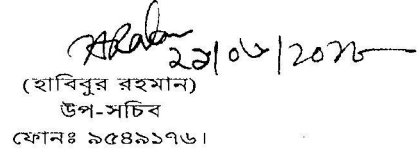 ২৯/০৬/২০১৮
(হাবিবুর রহমান)
উপ-সচিব
ফোনঃ ৯৫৪৯১৭৬।